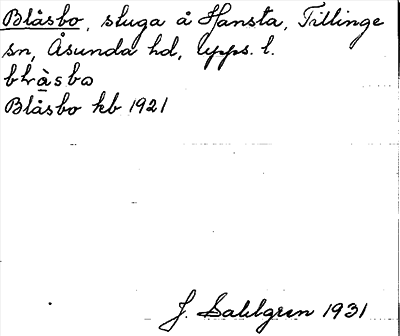 Blåsbo, stuga å Hansta, Tillinge
sn, Åsunda hd, Upps. l.
Blåsbo kb 1921
J. Sahlgren 1931